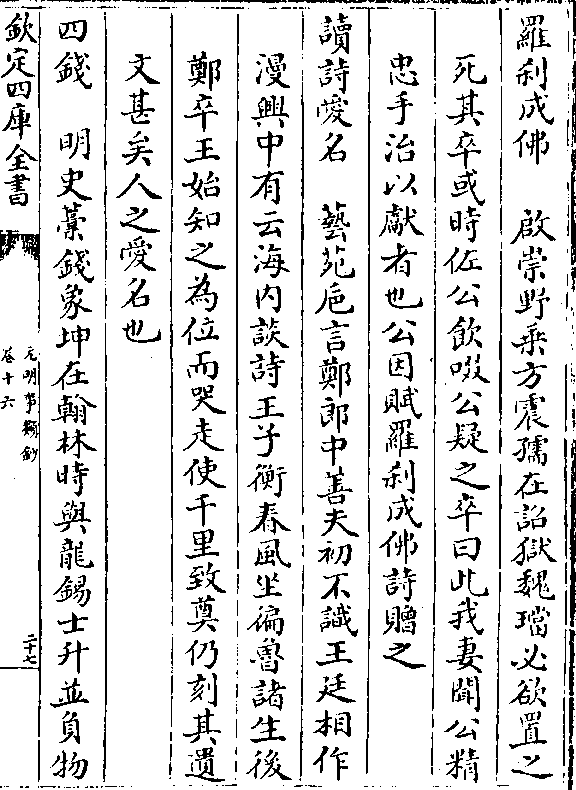 羅刹成佛　啟崇野乘方震孺在詔獄魏璫必欲置之
死其卒或時佐公飲啜公疑之卒曰此我妻聞公精
忠手治以獻者也公因賦羅刹成佛詩贈之
讀詩愛名　藝苑巵言鄭郎中善夫初不識王廷相作
漫興中有云海内談詩王子衡春風坐徧魯諸生後
鄭卒王始知之為位而哭走使千里致奠仍刻其遺
文甚矣人之愛名也
四錢　明史藁錢象坤在翰林時與龍錫士升並負物
欽定四庫全書
元明事類鈔
卷十六
二十七